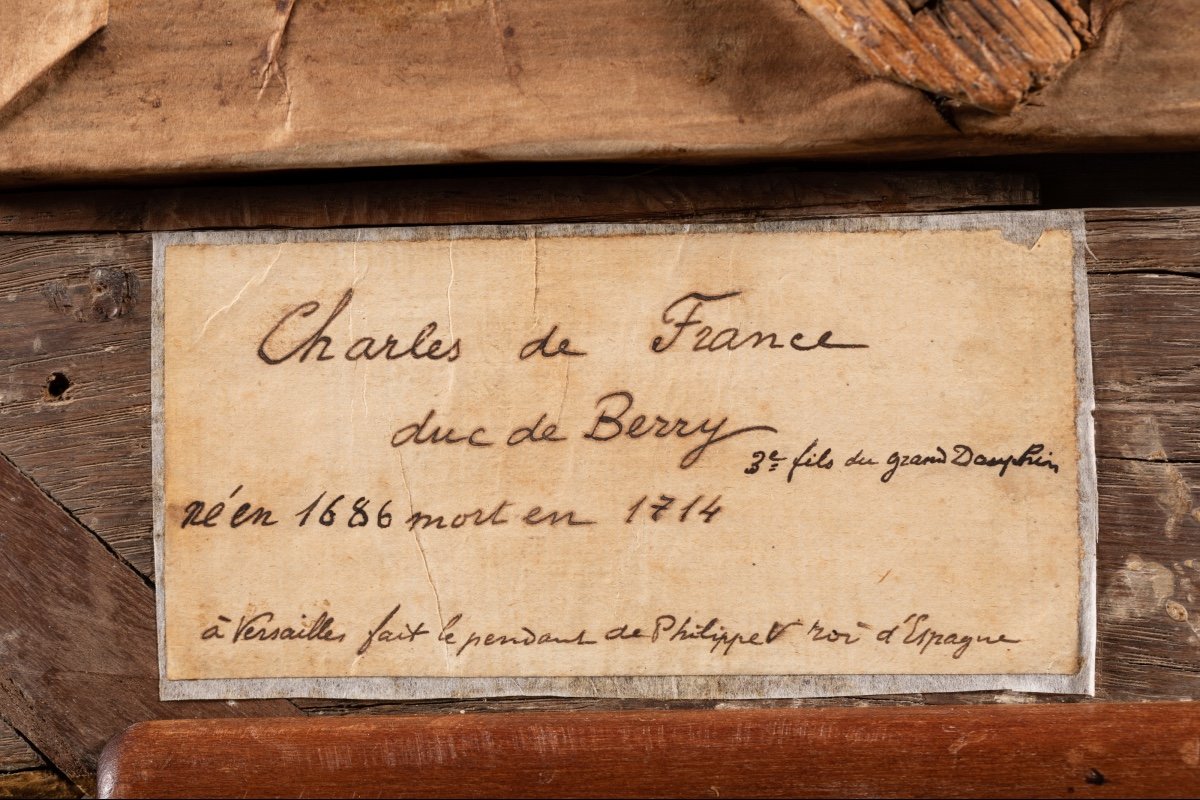 Charles de France
duc de Berry
3e fils du grand Dauphin
né en 1686 mort en 1714
à Versailles fait le pendant de Philippe V roi d'Espagne